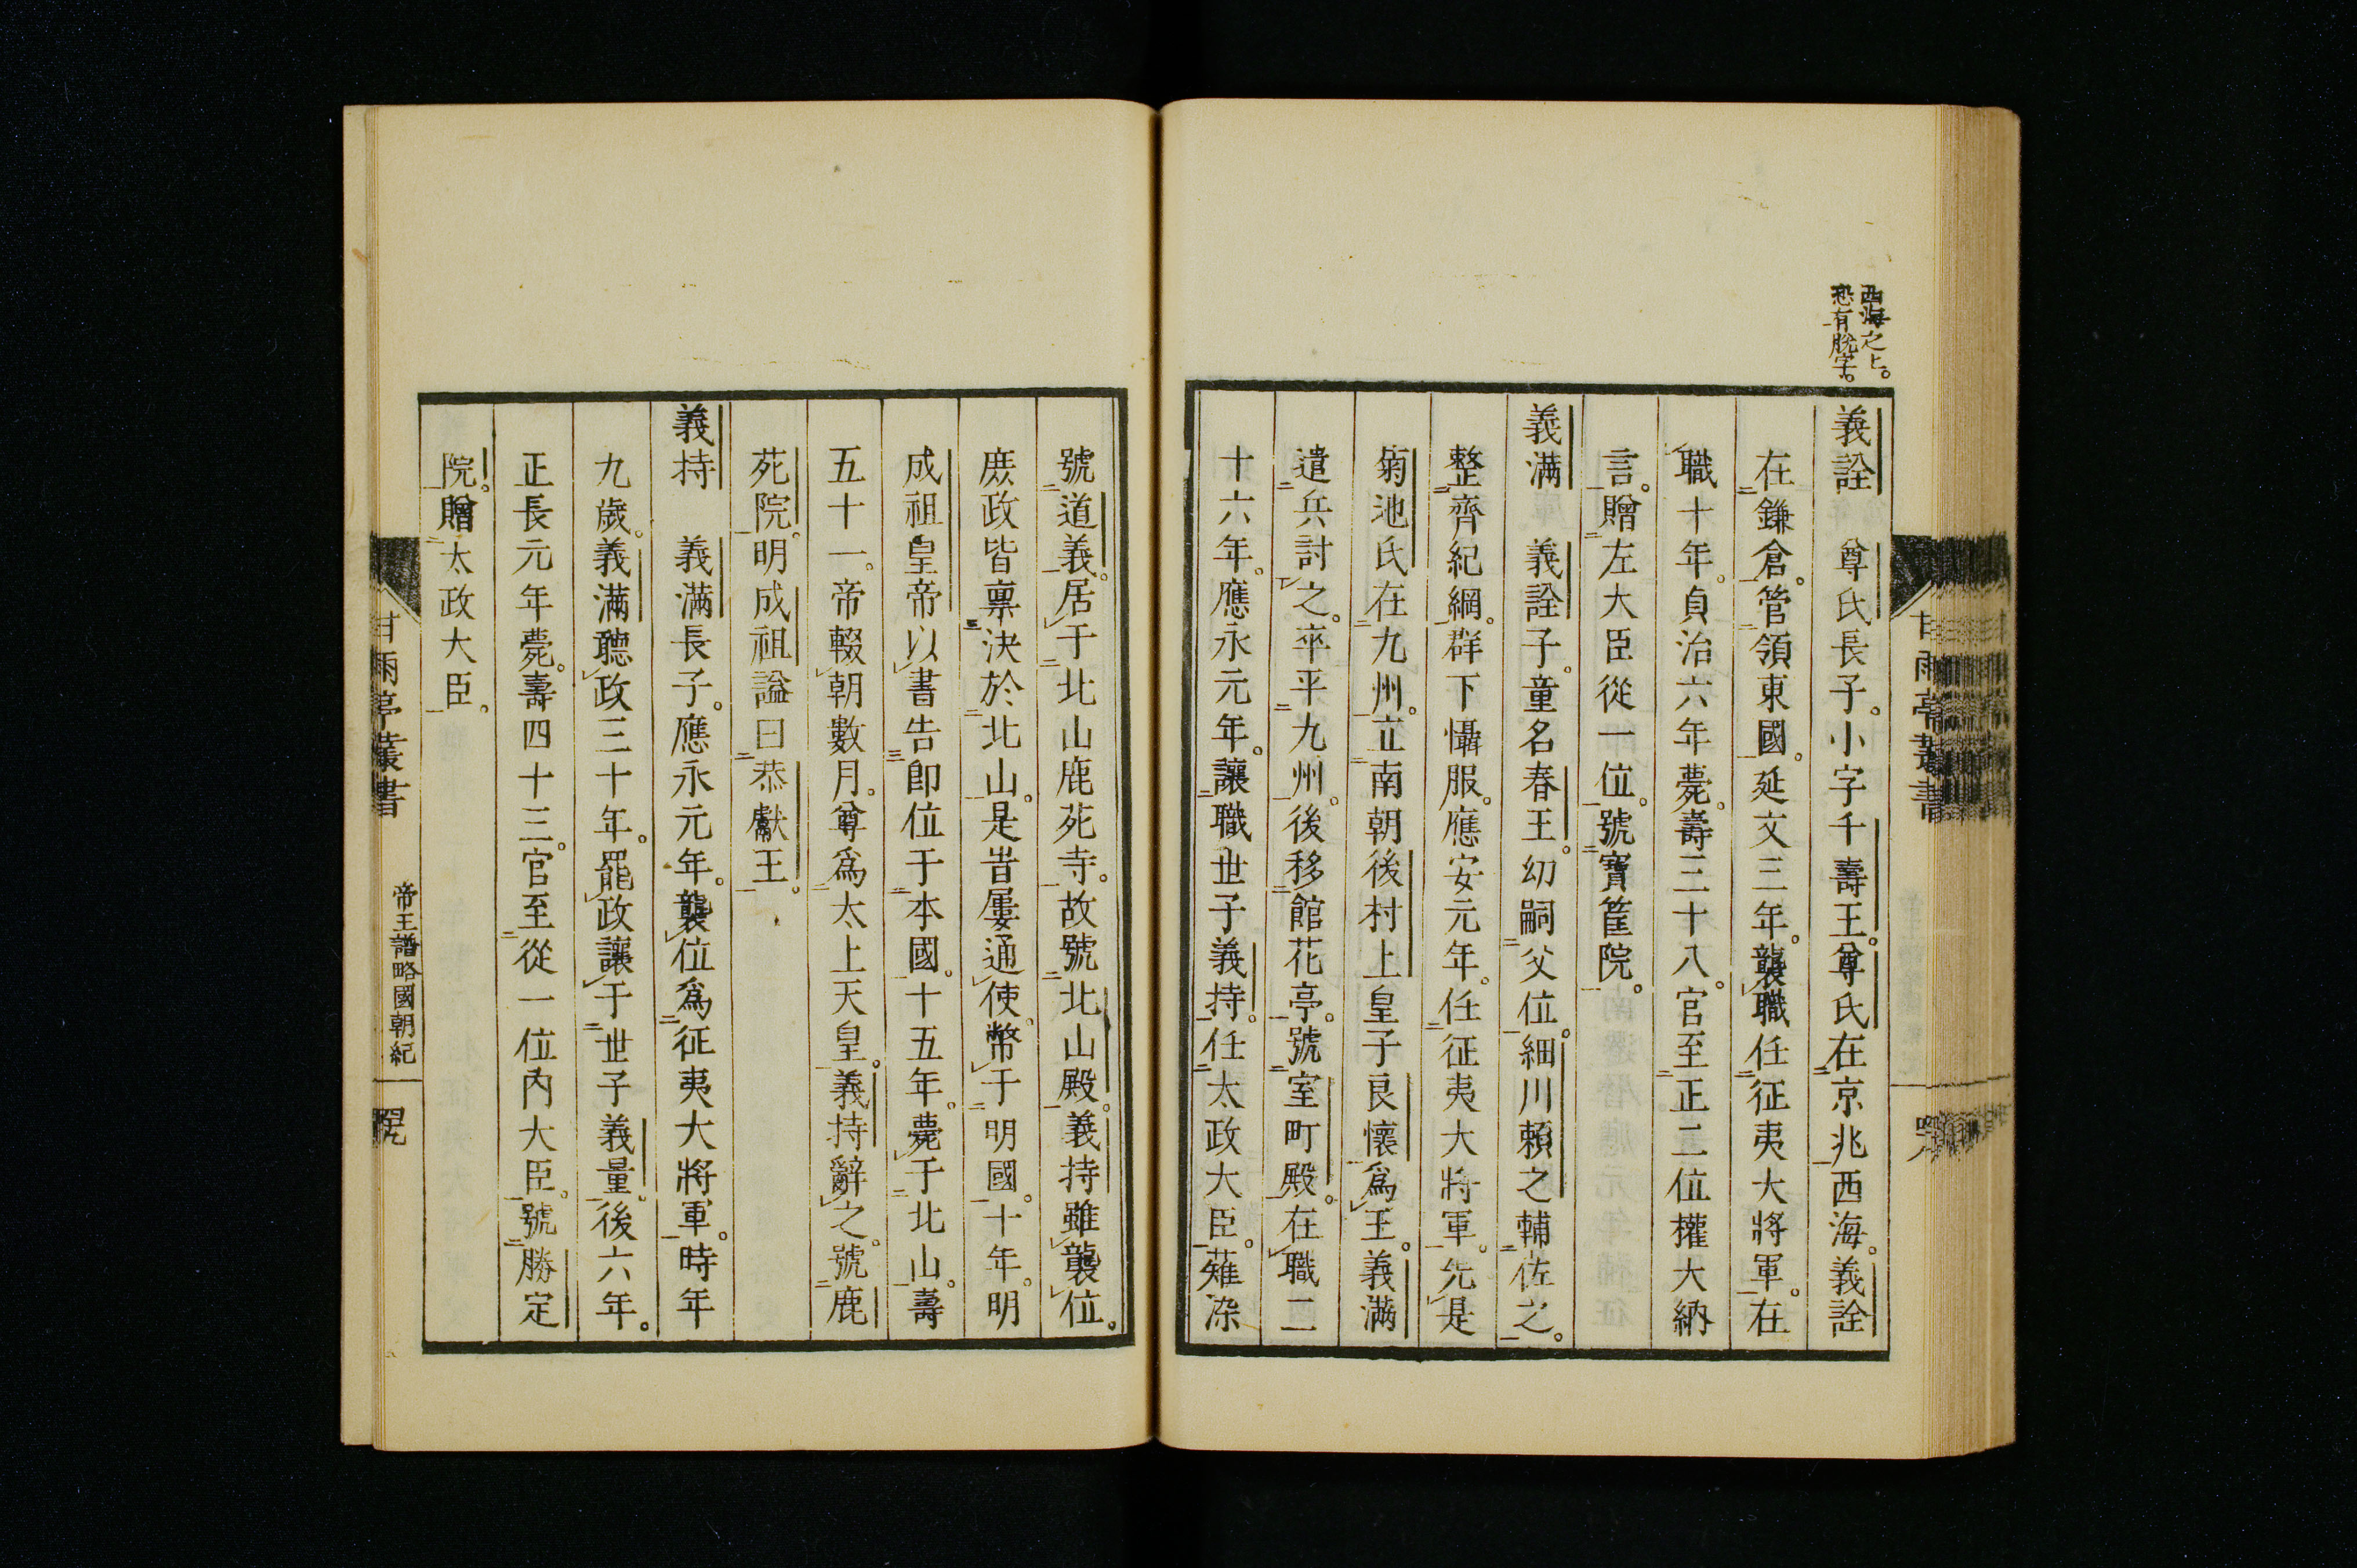 西海之上。
恐有脫字。
義詮　尊氏長子。小字千壽王。尊氏在京兆西海。義詮
在鎌倉。管領東國。延文三年。襲職任征夷大將軍。在
職十年。貞治六年薨。壽三十八。官至正二位權大納
言。贈左大臣從一位。號寶筐院。
義滿　義詮子。童名春王。幼嗣父位。細川賴之輔佐之。
整齊紀綱。群下懾服。應安元年。任征夷大將軍。先是
菊池氏在九州。立南朝後村上皇子良懷爲王。義滿
遣兵討之。卒平九州。後移館花亭。號室町殿。在職二
十六年。應永元年。讓職世子義持。任太政大臣。薙染
號道義。居于北山鹿苑寺。故號北山殿。義持雖襲位。
庶政皆稟決於北山。是昔屢通使幣于明國。十年。明
成祖皇帝以書告卽位于本國。十五年。薨于北山。壽
五十一。帝輟朝數月。尊爲太上天皇。義持辭之。號鹿
苑院。明成祖謚曰恭獻王。
義持　義滿長子。應永元年。襲位爲征夷大將軍。時年
九歲。義滿聽政三十年。罷政讓于世子義量。後六年。
正長元年薨。壽四十三。官至從一位內大臣。號勝定
院。贈太政大臣。
甘雨亭叢書
帝王譜略國朝紀
甘雨亭叢書